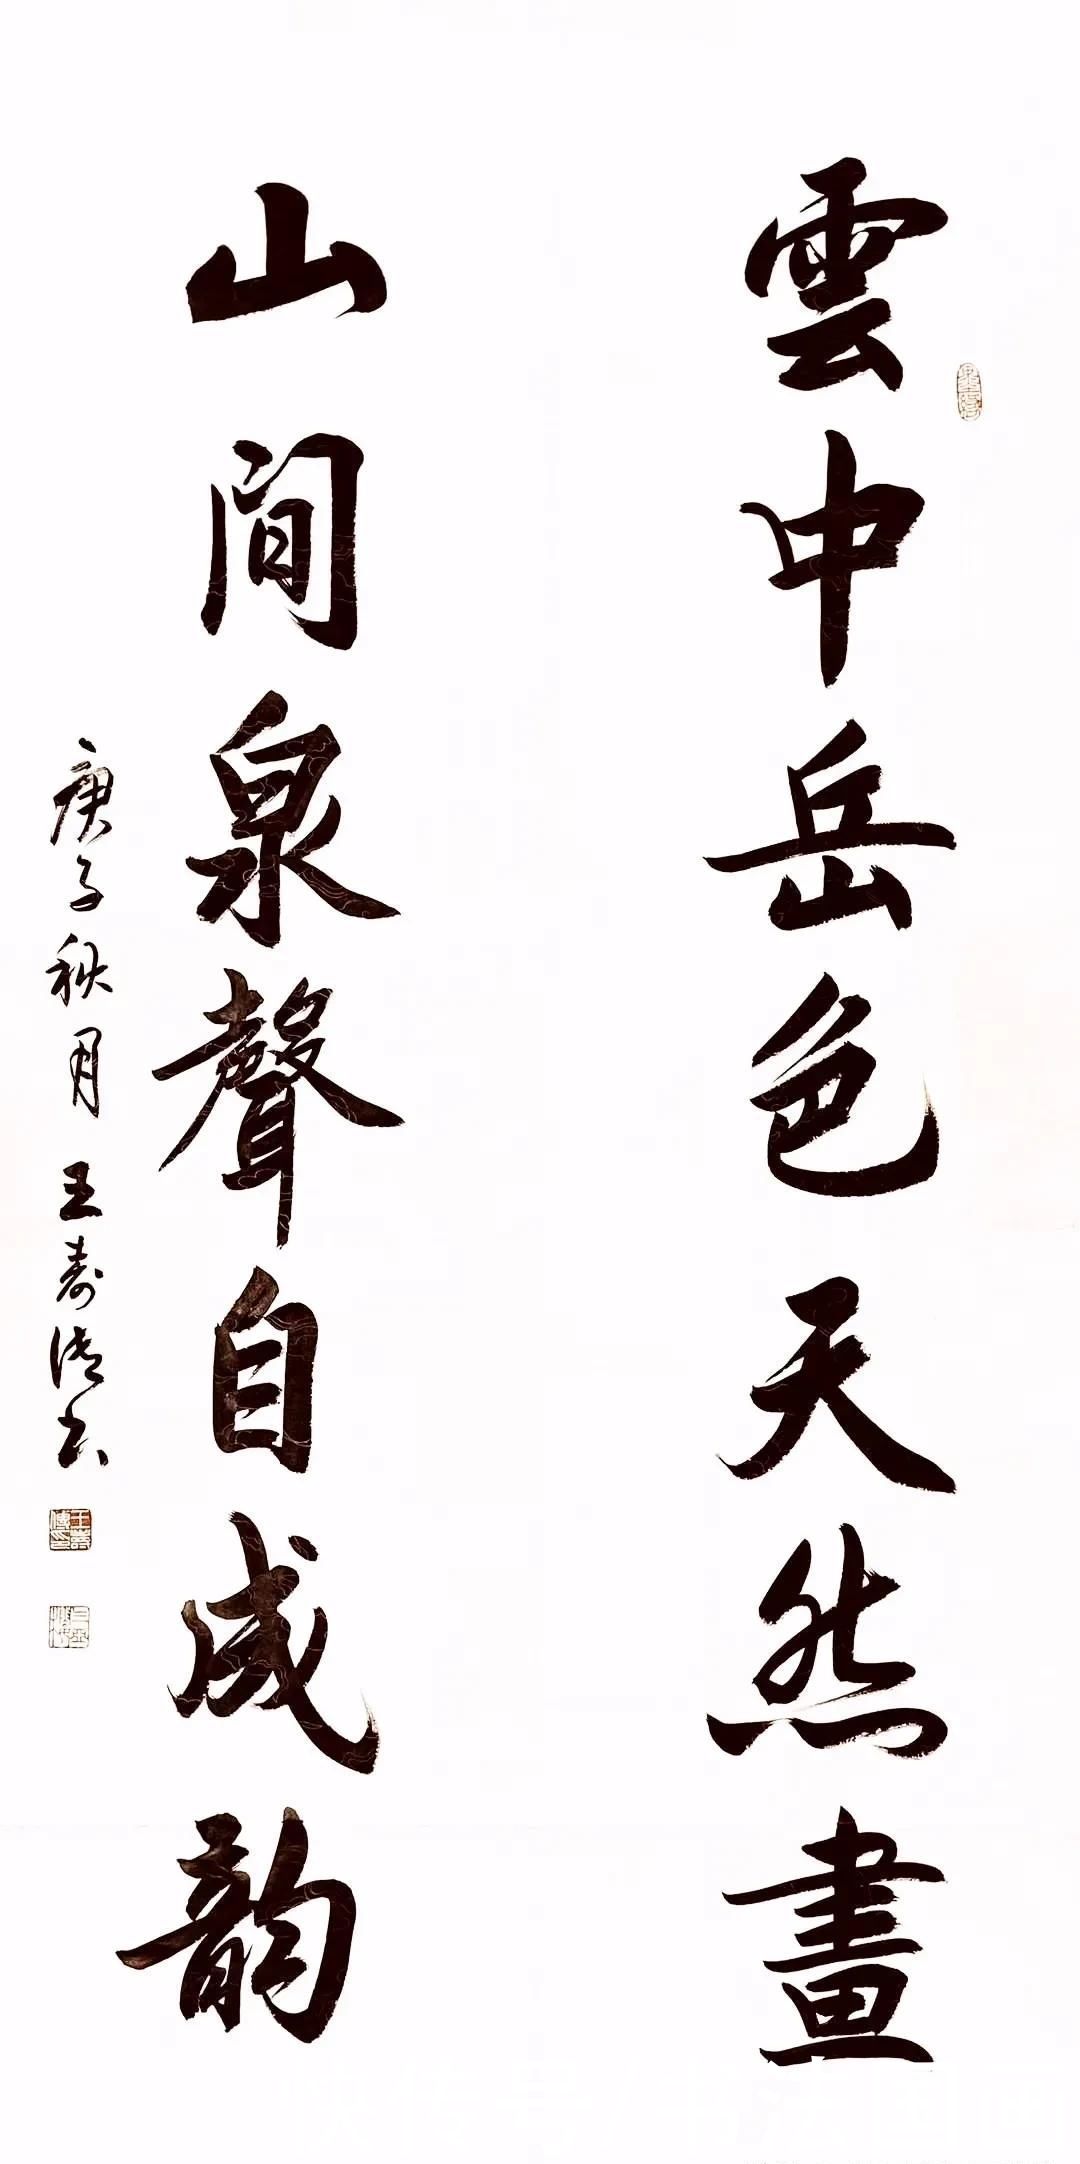 雲中岳色天然畫
山間泉聲自成韵
庚子秋月 王壽傳書
王壽傳印